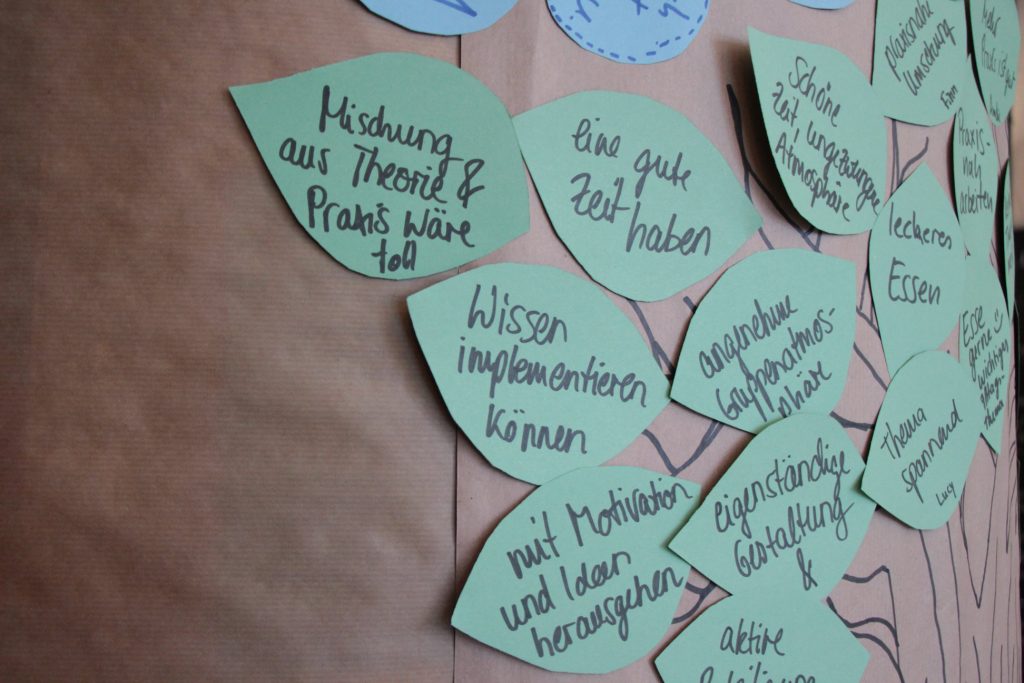 Mischung
aus Theorie &
Praxis wäre
toll
eine gute
Zeit haben
Schöne
Zeit, ungezwungene
Atmosphäre
praxisnahe
Umsetzung
Praxis-
nah
arbeiten
leckeres
Essen
Wissen
implementieren
können
angenehme
Gruppenatmos-
phäre
Esse
gerne
wichtiges
Thema
Thema
spannend
Lucy
mit Motivation
und Ideen
herausgehen
eigenständige
Gestaltung
&
aktive